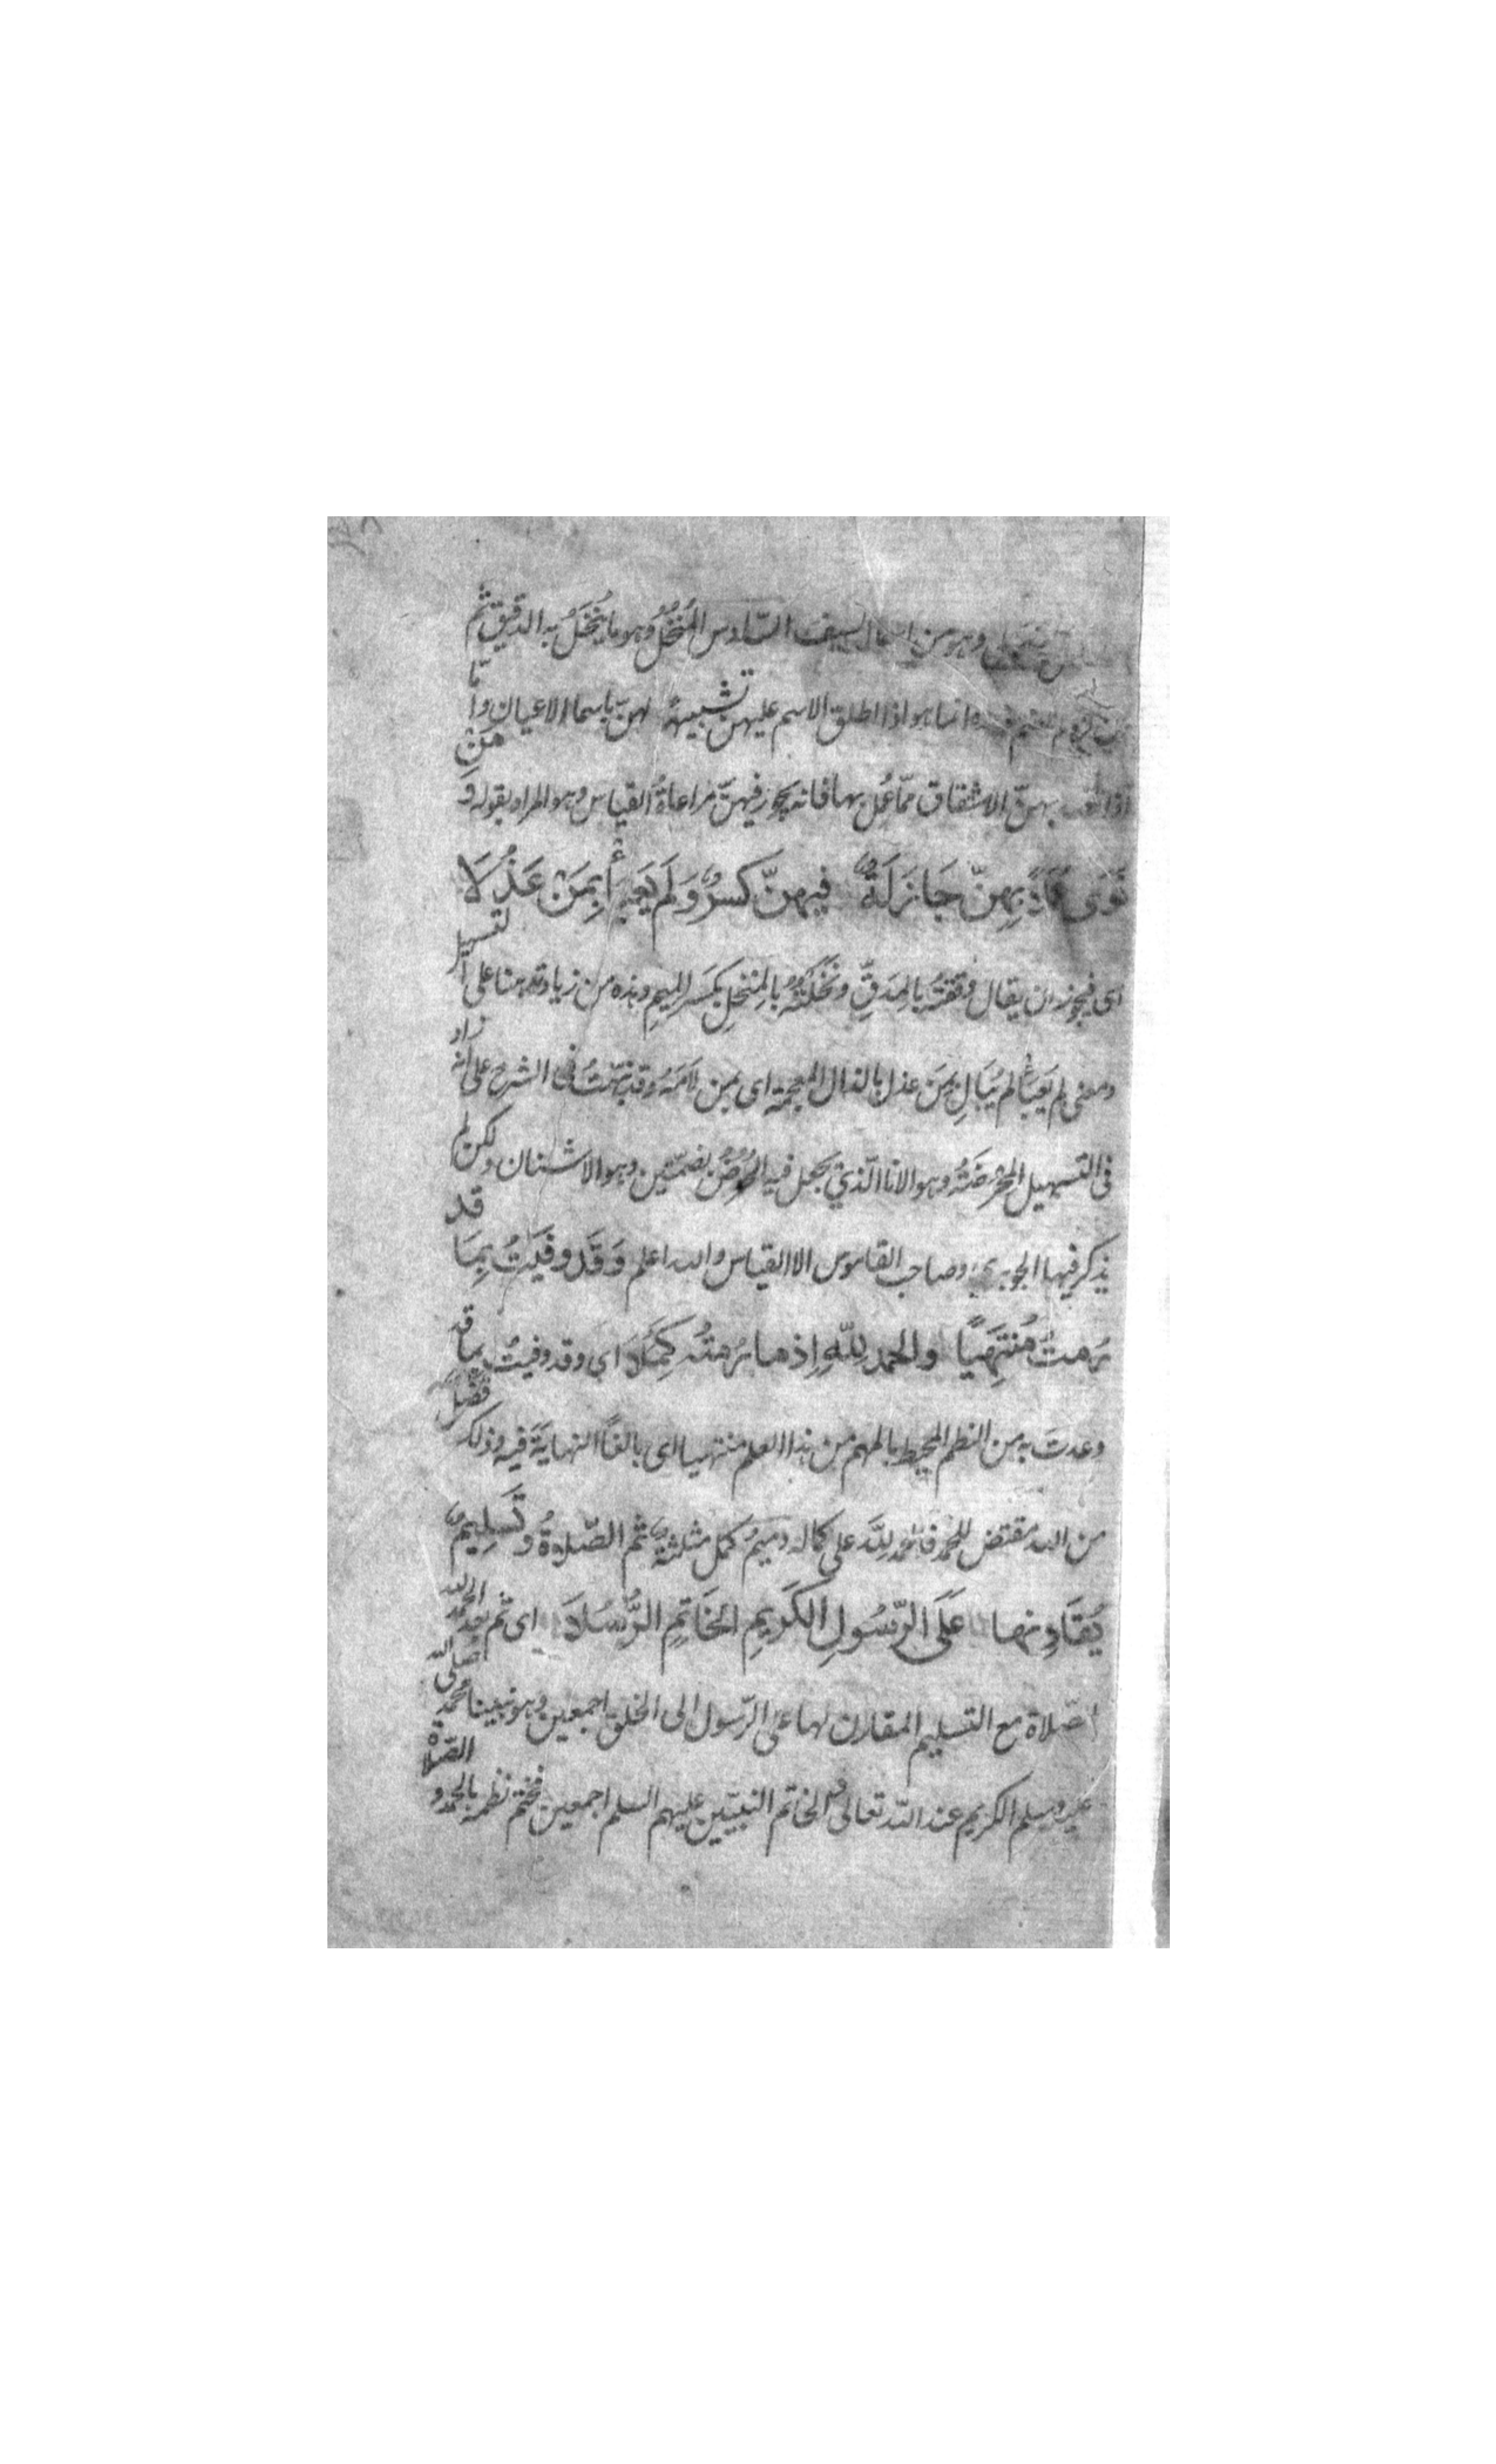 وهو من اسماء السيف السّادس المُنْخُلُ وهو ما يُنْخَلُ به الدقيق ثم
انما هو اذا اطلق الاسم عليهنّ تشبيهًا لهنّ باسما الاعيان وامّا
اذا بهنّ الاشتقاق ممّا عُمل بها فانه يجوز فيهنّ مراعاةُ القياس وهو المراد بقوله وَمَنْ
نَوَى بِهِنّ جَازَ لَهُ فيهنّ كسرٌ وَلَم يَعبأ بِمَنْ عَذَلَا
اى فيجوز ان يقال دققتُه بالمِدَقِّ ونَخَلتُهُ بالمِنْخَلِ بكسر الميم وهذه من زيادته هنا على التسهيل
ومعنى لم يَعبأ لم يُبَالِ بمَن عذل بالذال المعجمة اى بمن لَامَهُ وقد نبّهتُ فى الشرح على انه زاد
فى التسهيل المحرضَةُ وهو الانا الّذي يجعل فيه الحُرُضُ بضمّتين وهو الاشنان ولكن لم
يذكر فيها الجوهرى وصاحب القاموس الا القياس والله اعلم وَقَد وفَيتُ بِمَا قد
رُمتُ مُنْتَهِيًا والحمد لِلّهِ اِذ ما رُمتُه كَمُلَا اى وقد وفيتُ بما قد
وعدت به من النظم المحيط بالمهم من هذا العلم منتهيا اى بالغًا النهايَةَ فيه وذلك فضل
من الله مقتض للحمد فالحمد لِلَّه على كماله وميمُ كمل مثلثةٌ ثم الصّلوةُ وتَسلِيمٌ
يُقَارِنها عَلَى الرّسُولِ الكَرِيمِ الخَاتِمِ الرُّسُلَا اى ثم بعد الحمد لله
الصّلاة مع التسليم المقارن لها على الرّسول الى الخلق اجمعين وهو نبينا محمد صلى الله
عليه وسلم الكريم عند اللّه تعالى الخاتم النبيّين عليهم السلم اجمعين فختم نظمه بالحمد والصّلاة